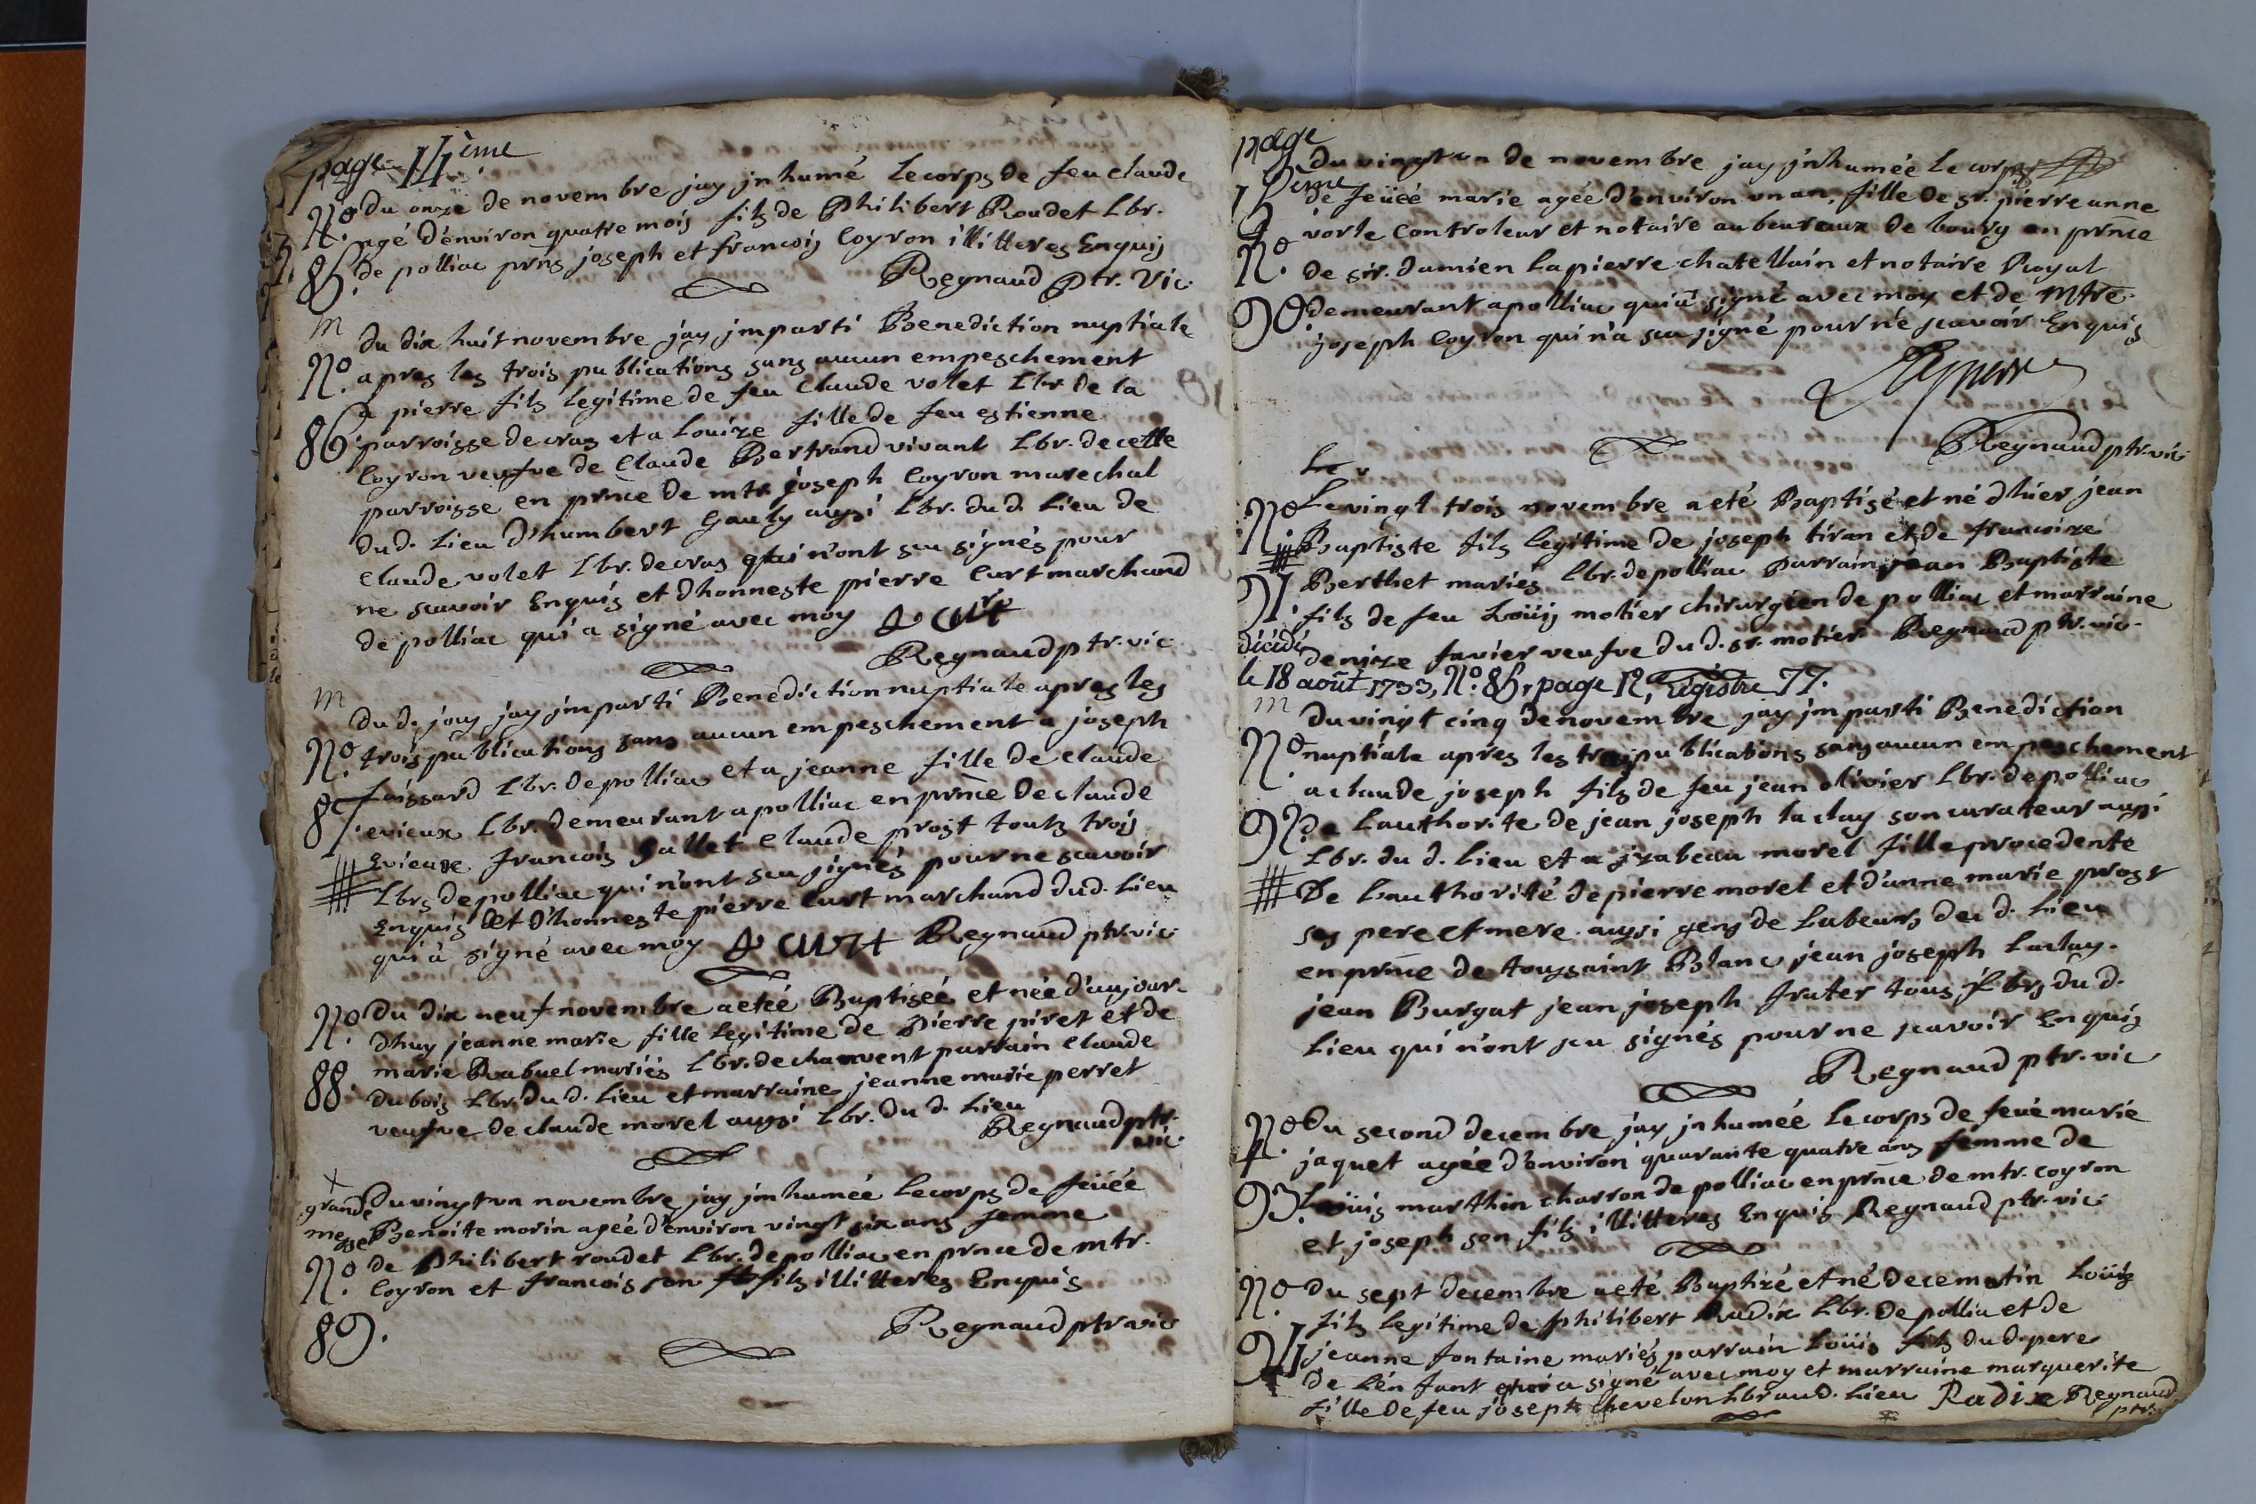 page 14ème
No. du onze de novembre jay jnhumé le corps de feu claude
agé d'environ quatre mois fils de Philibert Roudet Lbr.
85. de polliac prns joseph et francois Coyron illitteres Enquis
Regnaud Ptr. Vic
m
du dix huit novembre jay jmparti Benediction nuptiale
No. apres les trois publications sans aucun empeschement
a pierre fils legitime de feu Claude volet Lbr. de la
86. parroisse de cras et a Louize fille de feu estienne
Coyron veufve de Claude Bertrand vivant Lbr. de cette
parroisse en prnce de mtr. joseph Coyron marechal
du d. Lieu d'humbert Gauly aussi Lbr. du d. Lieu de
Claude volet Lbr. de cras qui n'ont su signés pour
ne scavoir Enquis et d'honneste pierre Curt marchand
de polliac qui a signé avec moy P Curt
Regnaud ptr. vic
m
du d. jour jay jmparti Benediction nuptiale apres les
No. trois publications sans aucun empeschement a joseph
faissard Lbr. de polliac et a jeanne fille de claude
87. evieux Lbr. demeurant a polliac en prnce de claude
Evieux francois Gallet Claude prost touts trois
Lbrs de polliac qui n'ont su signés pour ne scavoir
Enquis et d'honneste pierre Curt marchand du d. Lieu
qui à signé avec moy P Curt Regnaud ptr. vic
No. du dix neuf novembre a eteé Baptiseé et née d'aujour-
dhuy jeanne marie fille legitime de Pierre piret et de
marie Rabuel mariés Lbr. de chanvent parrain Claude
88. dubois Lbr. du d. Lieu et marraine jeanne marie perret
veufve de claude morel aussi Lbr. du d. Lieu
Regnaud ptr.
vic
+
grande du vingt un novembre jay jnhumée le corps de feüée
messe Benoite morin agée d'environ vingt six ans femme
No. de Philibert roudet Lbr. de polliac en prnce de mtr.
Coyron et francois son fils illitteres Enquis
89. Regnaud ptr. vic
page
15eme
du vingt un de novembre jay jnhumée le corps
de feüeé marie agée d'environ un an, fille de sr. pierre anne
vorle Controleur et notaire au beureaux de bourg en prnce
No. de sir. damien Lapierre chatellain et notaire Royal
90. demeurant a polliac qui a signé avec moy et de Mtre.
joseph Coyron qui n'a su signé pour ne scavoir Enquis
Lapierre
Regnaud ptr. vic
Le v
No. Le vingt trois novembre a eté Baptisé et né d'hier jean
Baptiste fils legitime de joseph tiran et de francoize
91. Berthet mariés Lbr. de polliac Parrain jean Baptiste
fils de feu Loüis motier chirurgien de polliac et marraine
décédé denize favier veufve du d. sr. motier Regnaud ptr. vic.
le 18 août 1733, No. 85, page 12, registre 77.
m
du vingt cinq de novembre jay jmparti Benediction
No. nuptiale apres les trois publications sans aucun empeschement
a claude joseph fils de feu jean olivier Lbr. de polliac
92. de Lauthorite de jean joseph laclay son curateur aussi
Lbr. du d. Lieu et a jzabeau morel fille procedente
De Lauthorité de pierre morel et d'anne marie prost
ses pere et mere aussi gens de Labeurs du d. Lieu
en prnce de toussaint Blanc jean joseph Laclay.
jean Burgat jean joseph frater tous Lbrs du d.
Lieu qui n'ont su signés pour ne scavoir Enquis
Regnaud ptr. vic
No. Du second decembre jay jnhumée le corps de feüe marie
jaquet agée d'environ quarante quatre ans femme de
93. Loüis marthin charron de polliac en prnce de mtr. coyron
et joseph son fils illitteres Enquis Regnaud ptr. vic
No. du sept decembre a eté Baptizé et né de ce matin Loüis
fils legitime de philibert Radix Lbr. de pollia et de
94 jeanne fontaine mariés parrain Loüis fils du d. pere
de L'enfant qui a signé avec moy et marraine marguerite
fille de feu joseph Chevelon Lbr au d. Lieu Radix Regnaud
ptr.